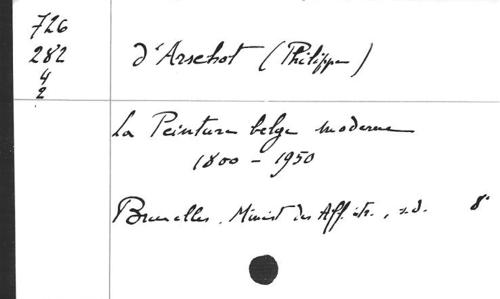 726
282
4
2
d'Arschot (Philippe)
La Peinture belge moderne
1800 - 1950
Bruxelles. Minist. des Aff. etr., s.d. 8°